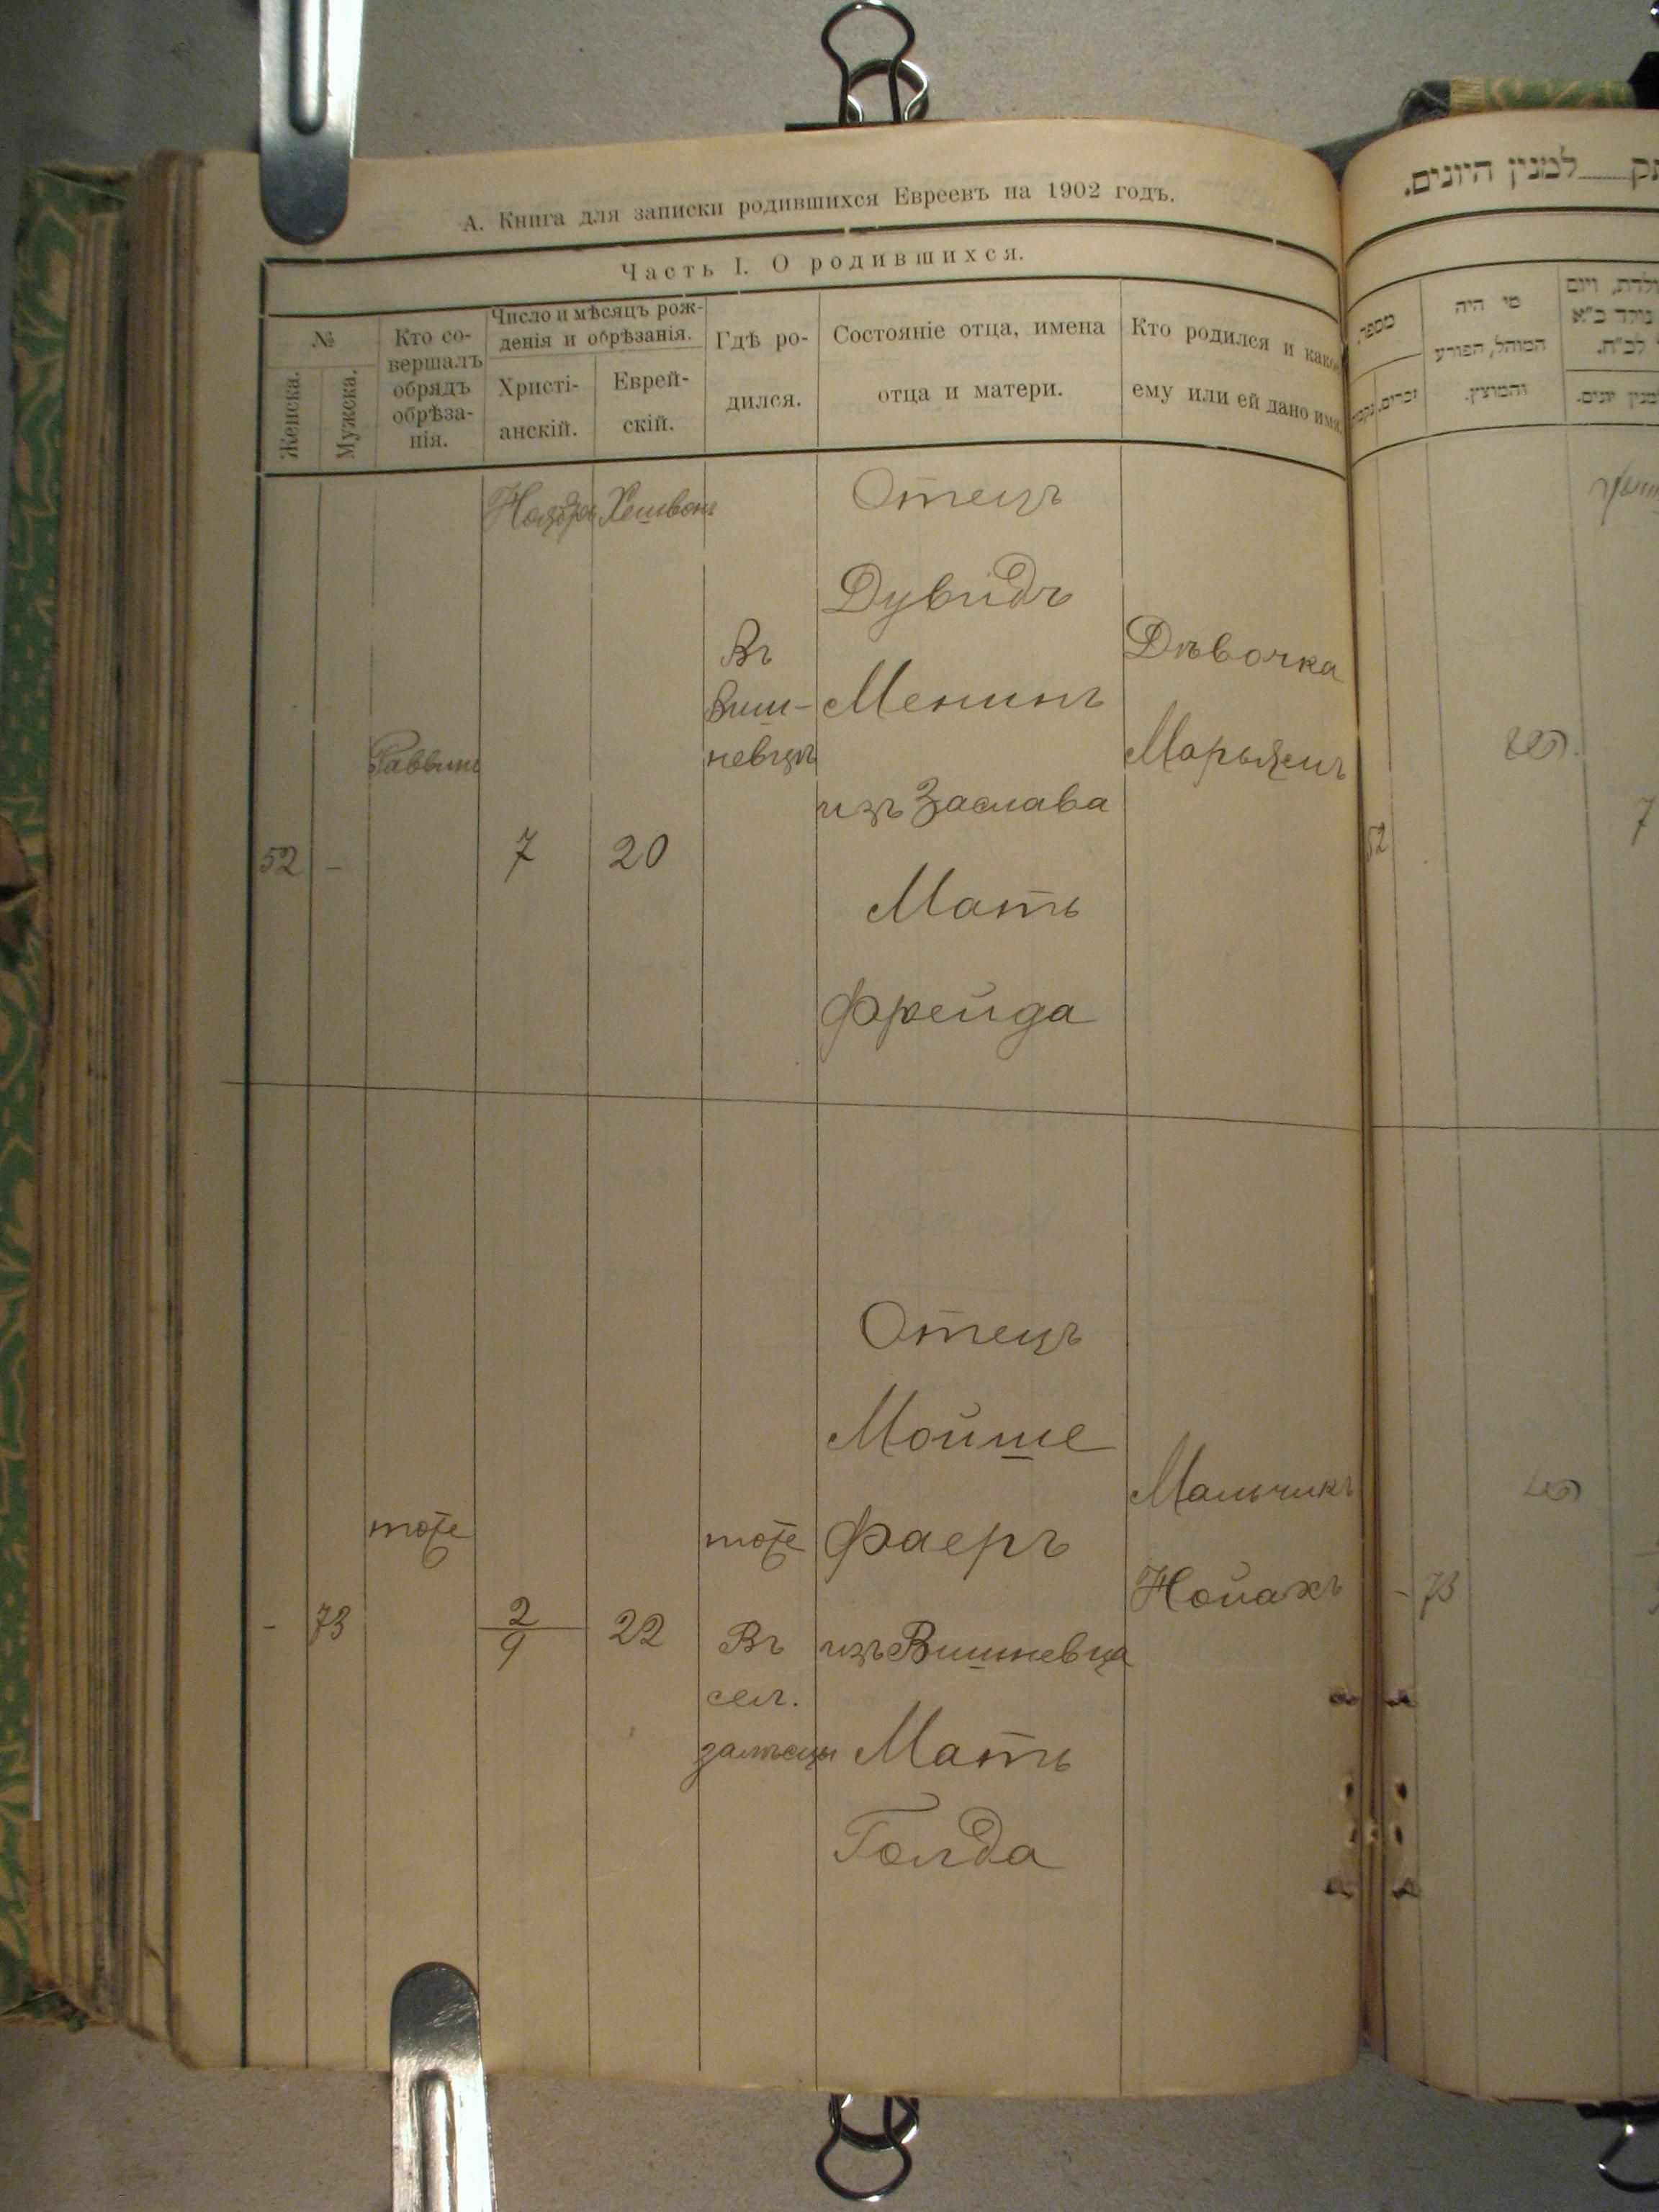 А. Книга для записки родившихся Евреевъ на 1902 годъ.
Часть I. О родившихся.
№
Женска.
Мужска.
Кто со-
вершалъ
обрядъ
обрѣза-
нія.
Число и мѣсяцъ рож-
денія и обрѣзанія.
Христі-
анскій.
Еврей-
скій.
Гдѣ ро-
дился.
Состояніе отца, имена
отца и матери.
Кто родился и како
ему или ей дано имя.
52
-
Раввинъ
Ноября
7
Хешвонъ
20
Въ
Виш-
невцѣ
Отецъ
Дувидъ
Менинъ
изъ Заслава
Мать
Фрейда
Дѣвочка
Марьясъ
-
73
тоже
2
9
22
тоже
Въ
сел.
Отецъ
Мойше
Фаеръ
изъ Вишневца
Мать
Голда
Мальчикъ
Нойахъ
למנין היונים.
מספר
זכרים.
מי היה
המוהל, הפורע
והמוצץ.
52
7
- 73